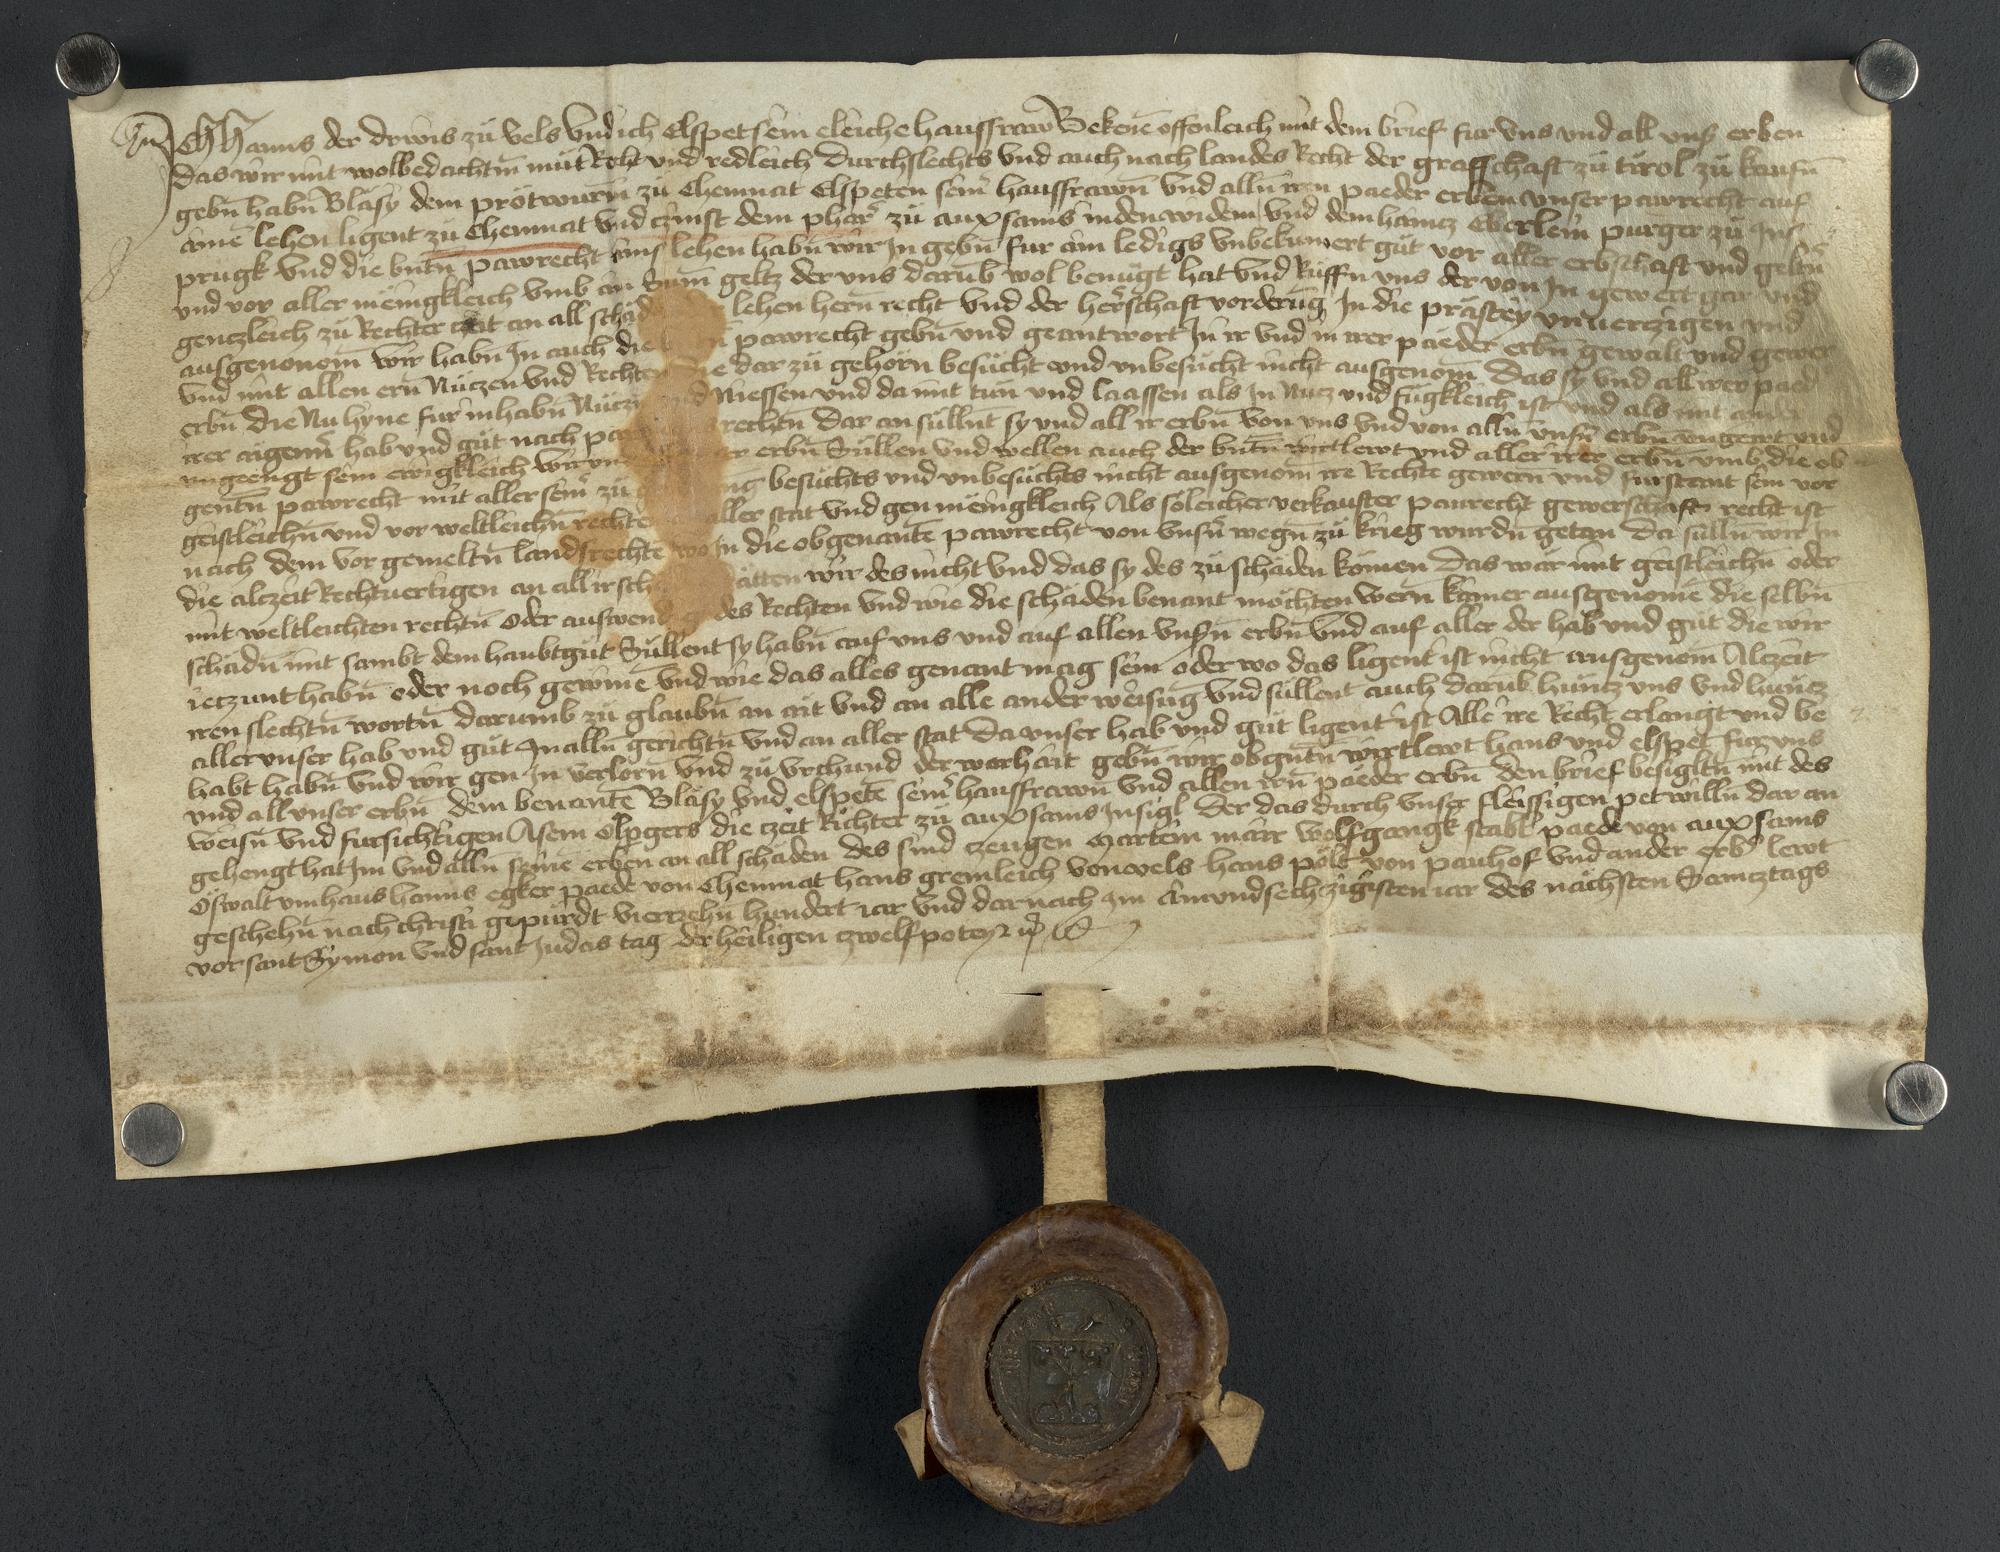 Ich Hanns der drwis zu Vels Vnd ich Elspet sein eleiche haussfraw Bekene offenleich mit dem brief fur vns vnd all vnsr erben
das wir mit wolbedachtm mut Recht vnd redleich durchslechts vnd auch nach landes Recht der graffschaft zu tirol zu kaufn
gebn habn Bläsy dem prötwurm zu Chemnat Elspeten seinr haussfrawn vnd alln irn paeder erben vnser pawrecht auf
aime lehen ligent zu Chemnat vnd czinst dem pharr zu auxsams in den widem vnd dem haincz Eberlein purger zu Ins
prugk vnd die bntn pawrecht ains lehen habn wir In gebn fur ain ledigs vnbekumert gut vor aller erbschaft vnd geltn
vnd vor aller mēingkleich vmb ain Sum geltz der vns darub wol benugt hat vnd Ruffn vns der von In gewert gar vnd
genczleich zu Rechter czeit an all schäd lehen hern recht vnd der herschaft vordrung In die präfcey vnuerczigen vnd
ausgenonom wir habn In auch die pawrecht gebn vnd geantwort In ir vnd in irer paeder erbn gewalt vnd gewer
vnd mit allen ern Nuczen vnd Rechten dar zu gehorn besucht vnd vnbesucht nicht ausgenom das sy vnd all irer paed
erbn die Nu hyne fur inhabn Nuczn vnd Niessen vnd da mit tun vnd laassen als In Nucz vnd fugkleich ist vnd als mit ander
irer aigenr hab vnd gut nach paw rechtn dar an sullnt sy vnd all ir erbn von vns vnd von alln vnsrn erbn vngeirt vnd
vngeengt sein ewigkleich wir vn erbn Sullen vnd wellen auch der bntn wirtlewt vnd aller irer erbn vmb die ob
gentn pawrecht mit aller seinr zu besuchts vnd vnbesuchts nicht ausgenom ire Rechte gewern vnd furstant sein vor
geistleichn vnd vor weltleichn rechten aller stat vnd gen mēingkleich Als soleicher verkaufter paurecht gewerschaft recht ist
nach dem vor gemeltn landsrechte wo In die obgenante pawrecht von vnsrn wegn zu krieg wurdn getan da sulln wir In
die alczeit Rechtuertigen an all ir sch tätten wir des nicht vnd das sy des zu schaden kömen das wär mit geistleichn oder
mit weltleichten rechtn oder auswendig des Rechten vnd wie die schäden benant möchten wern kainer ausgenome die selbn
schadn mit sambt dem haubtgut Sullent sy habn auf vns vnd auf allen vnsrn erbn vnd auf aller der hab vnd gut die wir
ieczunt habn oder noch gewine vnd wie das alles genant mag sein oder wo das ligent ist nicht ausgenom Alczeit
iren slechtn wortn darumb zu glaubn an ait vnd an alle ander weisug vnd sullent auch darub huncz vns vnd huncz
aller vnser hab vnd gut In alln gerichtn vnd an aller stat da vnser hab vnd gut ligent ist Alle ire Recht erlangt vnd be
habt habn vnd wir gen In verlorn vnd zu vrchund der warhait gebn wir obgntn wirtlewt hans vnd elspet fur vns
vnd all vnser erbn dem benante Bläsy vnd elspete seinr haussfrawn vnd allen irn paeder erbn den brief besigltn mit des
weisn vnd fursichtigen Asem olpgers die czeit Richter zu auxsams Insigl der das durch vnser fleissigen pet willn dar an
gehengt hat Im vnd alln seine erben an all schaden des sind czeugen Martein mair Wolfgangk stabl paede von auxsams
Oswalt vmhaus hanns egker paede von Chemnat hans gremleich von vels hans pölt von pauhof vnd ander erbr lewt
geschehn nach christi gepurdt vierczehn hundert iar vnd dar nach Im ainvndsechczigisten iar des nächsten Samcztags
vor sant Symon vnd sant Judas tag der heiligen czwelfpoten